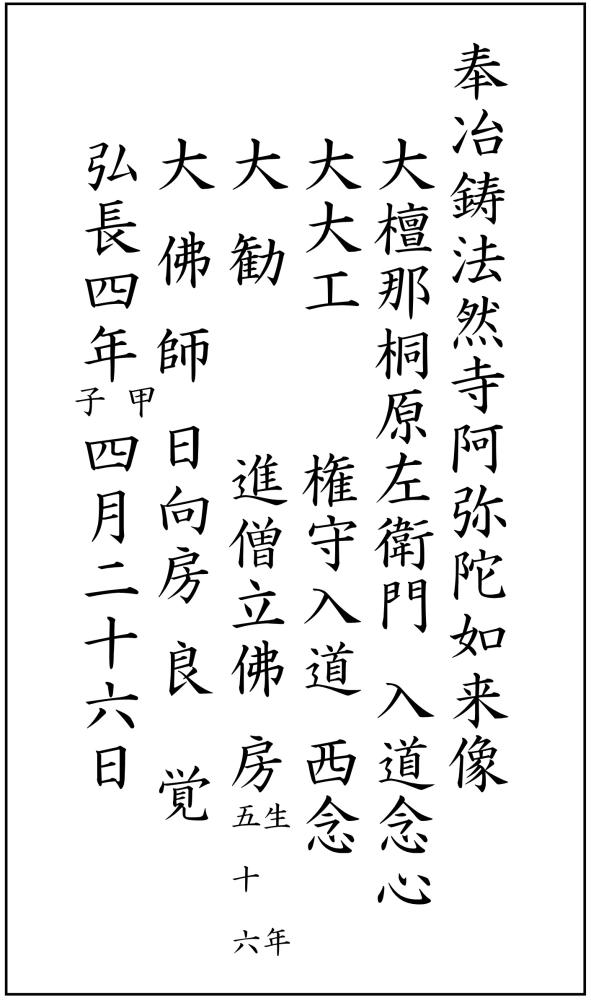 奉冶鋳法然寺阿弥陀如来像
大檀那桐原左衛門 入道念心
大大工 権守入道 西念
大勧 進僧立佛 房生年五十六
大佛師 日向房 良覚
弘長四年甲子四月二十六日